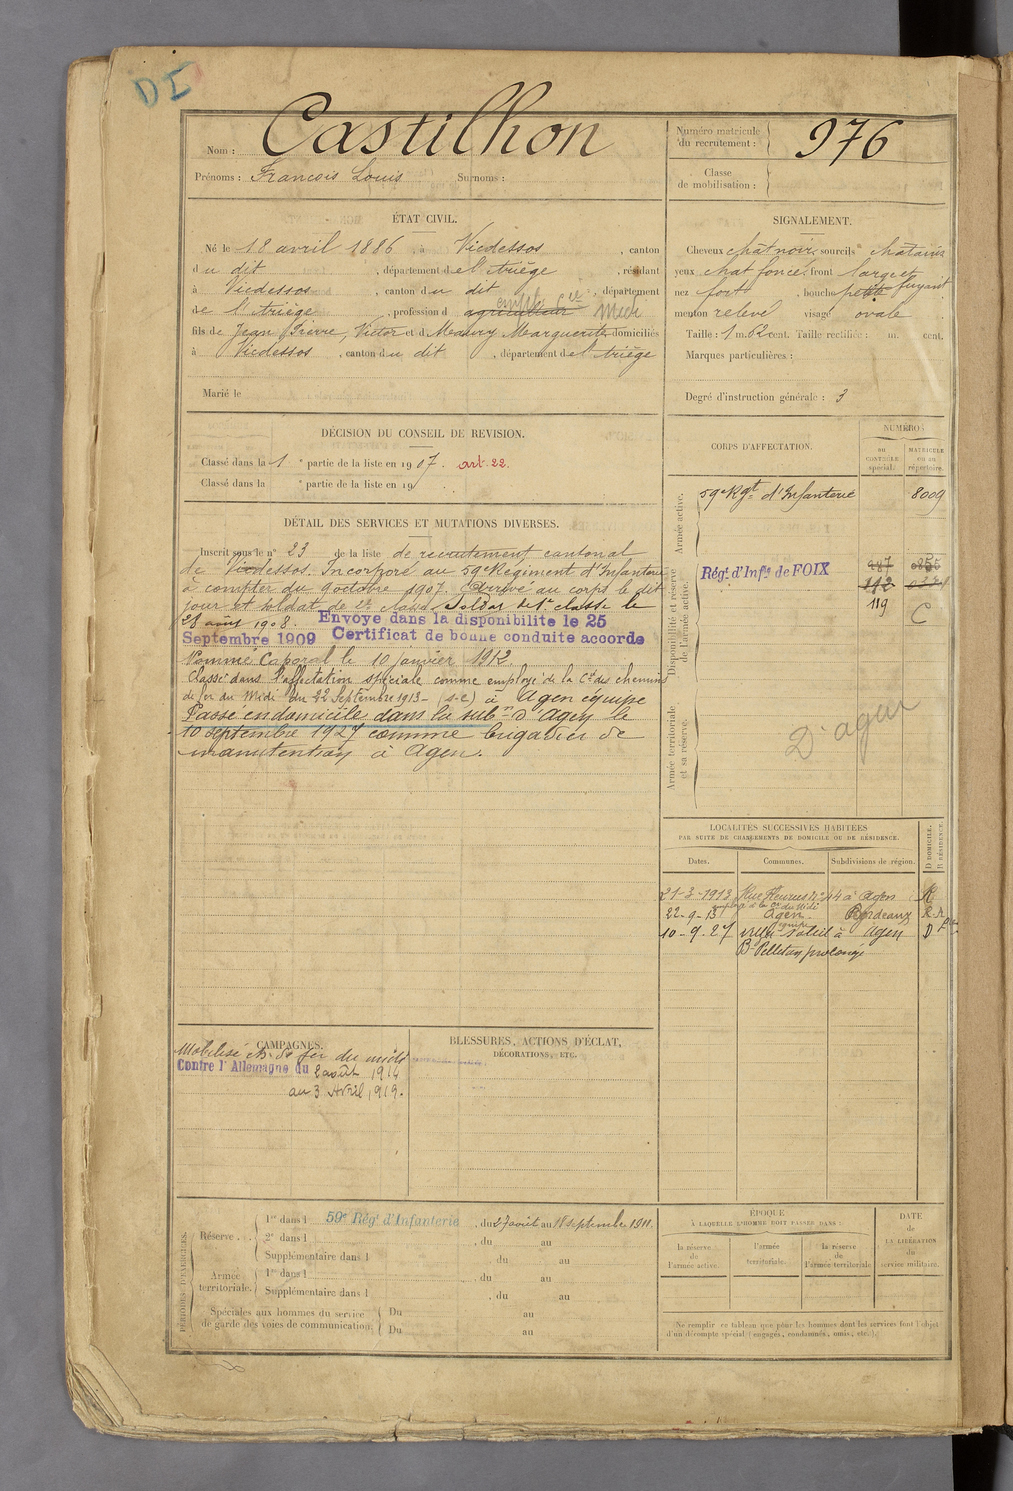 DI
Nom : Castilhon
Prénoms : Francois Louis Surnoms :
Numéro matricule du recrutement : 976
Classe de mobilisation :
ÉTAT CIVIL.
Né le 18 avril 1886, à Vicdessos, canton
du dit, département de l'Ariège, résidant
à Vicdessos, canton du dit, département
de l'Ariège, profession d agriculteur employé Cie Midi
fils de Jean Pierre, Victor et d Maury Marguerite domiciliés
à Vicdessos, canton du dit, département de l'Ariège
Marié le
SIGNALEMENT.
Cheveux chat noir, sourcils chatains
yeux chat foncé, front large et fuyant
nez fort, bouche petite
menton relevé visage ovale
Taille : 1 m. 62 cent. Taille rectifiée : m. cent.
Marques particulières :
Degré d'instruction générale : 3
DÉCISION DU CONSEIL DE REVISION.
Classé dans la 1e partie de la liste en 1907. art. 22.
Classé dans la e partie de la liste en 19 .
DÉTAIL DES SERVICES ET MUTATIONS DIVERSES.
Inscrit sous le n° 23 de la liste de recrutement cantonal
de Vicdessos. Incorporé au 59e Régiment d'Infanterie
à compter du 9 octobre 1907. Arrivé au corps le dit
jour et soldat de 2e classe. Soldat de 1e classe le
28 août 1908. Envoye dans la disponibilite le 25
Septembre 1909 Certificat de bonne conduite accorde
Nommé Caporal le 10 janvier 1912.
Classé dans l'affectation spéciale comme employé de la Cie des chemins
de fer du Midi du 22 Septembre 1913 - (s.e) à Agen équipe
Passé en domicile dans la subon d'Agen le
10 septembre 1927 comme brigadier de
manutention à Agen.
CORPS D'AFFECTATION.
NUMÉROS
AU CONTRÔLE spécial.
MATRICULE ou au répertoire.
Armée active.
59e Rgt d'Infanterie 8009
Disponibilité et réserve de l'armée active.
Régt d'Infie de FOIX 487
112
119 C
Armée territoriale et sa réserve.
D' agen
LOCALITÉS SUCCESSIVES HABITÉES
PAR SUITE DE CHANGEMENTS DE DOMICILE OU DE RÉSIDENCE.
Dates. Communes. Subdivisions de région. D DOMICILE. R RÉSIDENCE.
21-3-1913 Rue Fleurus n° 44 à Agen R
employé à la Cie du Midi
22-9-13 Agen Bordeaux R
équipe
10-9-27 villa soleil à Agen D
Bd Pelletan prolongé
CAMPAGNES.
Mobilisé ch. de fer du midi
Contre l'Allemagne du 2 août 1914
au 3 Avril 1919.
BLESSURES, ACTIONS D'ÉCLAT,
DÉCORATIONS, ETC.
PÉRIODES D'EXERCICES.
Réserve . . . 1re dans l 59e Régt d'Infanterie, du 27 août au 18 septembre 1911.
2e dans l , du au
Supplémentaire dans l , du au
Armée territoriale. 1re dans l , du au
Supplémentaire dans l , du au
Spéciales aux hommes du service de garde des voies de communication. Du au
Du au
ÉPOQUE
À LAQUELLE L'HOMME DOIT PASSER DANS :
la réserve de l'armée active.
l'armée territoriale.
la réserve de l'armée territoriale
DATE de LA LIBÉRATION du service militaire.
Ne remplir ce tableau que pour les hommes dont les services font l'objet
d'un décompte spécial (engagés, condamnés, omis, etc.).